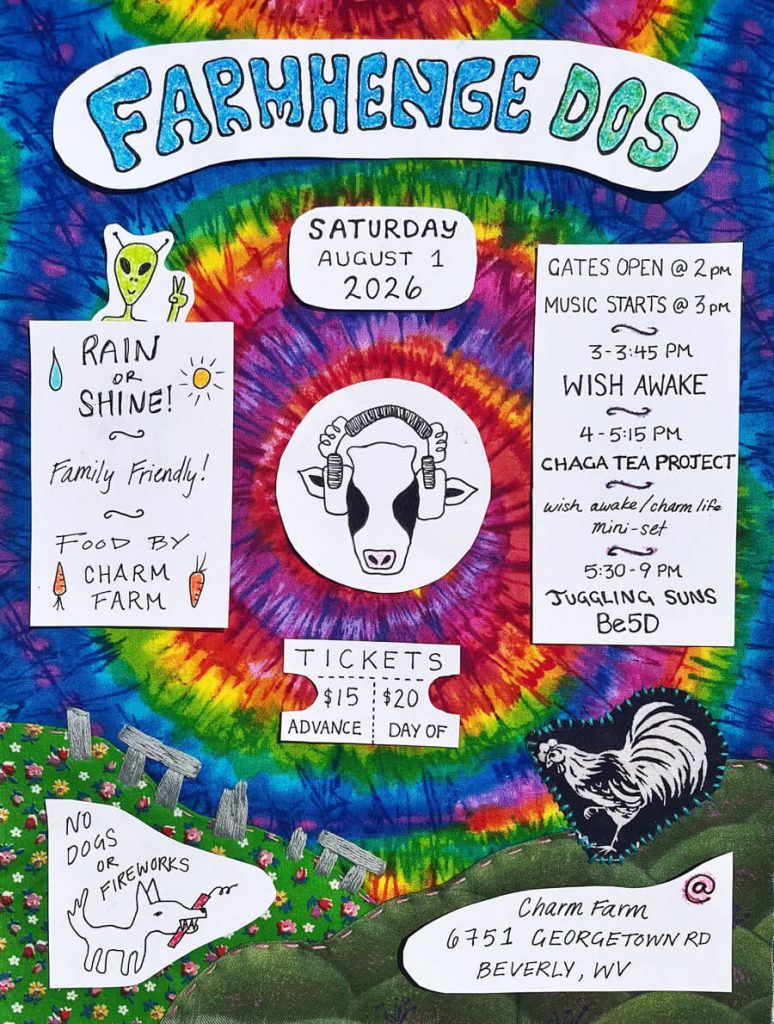 FARMHENGE DOS
SATURDAY
AUGUST 1
2026
RAIN
OR
SHINE!
Family Friendly!
FOOD BY
CHARM
FARM
GATES OPEN @ 2PM
MUSIC STARTS @ 3PM
3-3:45 PM
WISH AWAKE
4-5:15 PM
CHAGA TEA PROJECT
wish awake/charm life
mini-set
5:30-9 PM
JUGGLING SUNS
Be5D
TICKETS
$15 $20
ADVANCE DAY OF
NO
DOGS
OR
FIREWORKS
@
Charm Farm
6751 GEORGETOWN RD
BEVERLY, WV